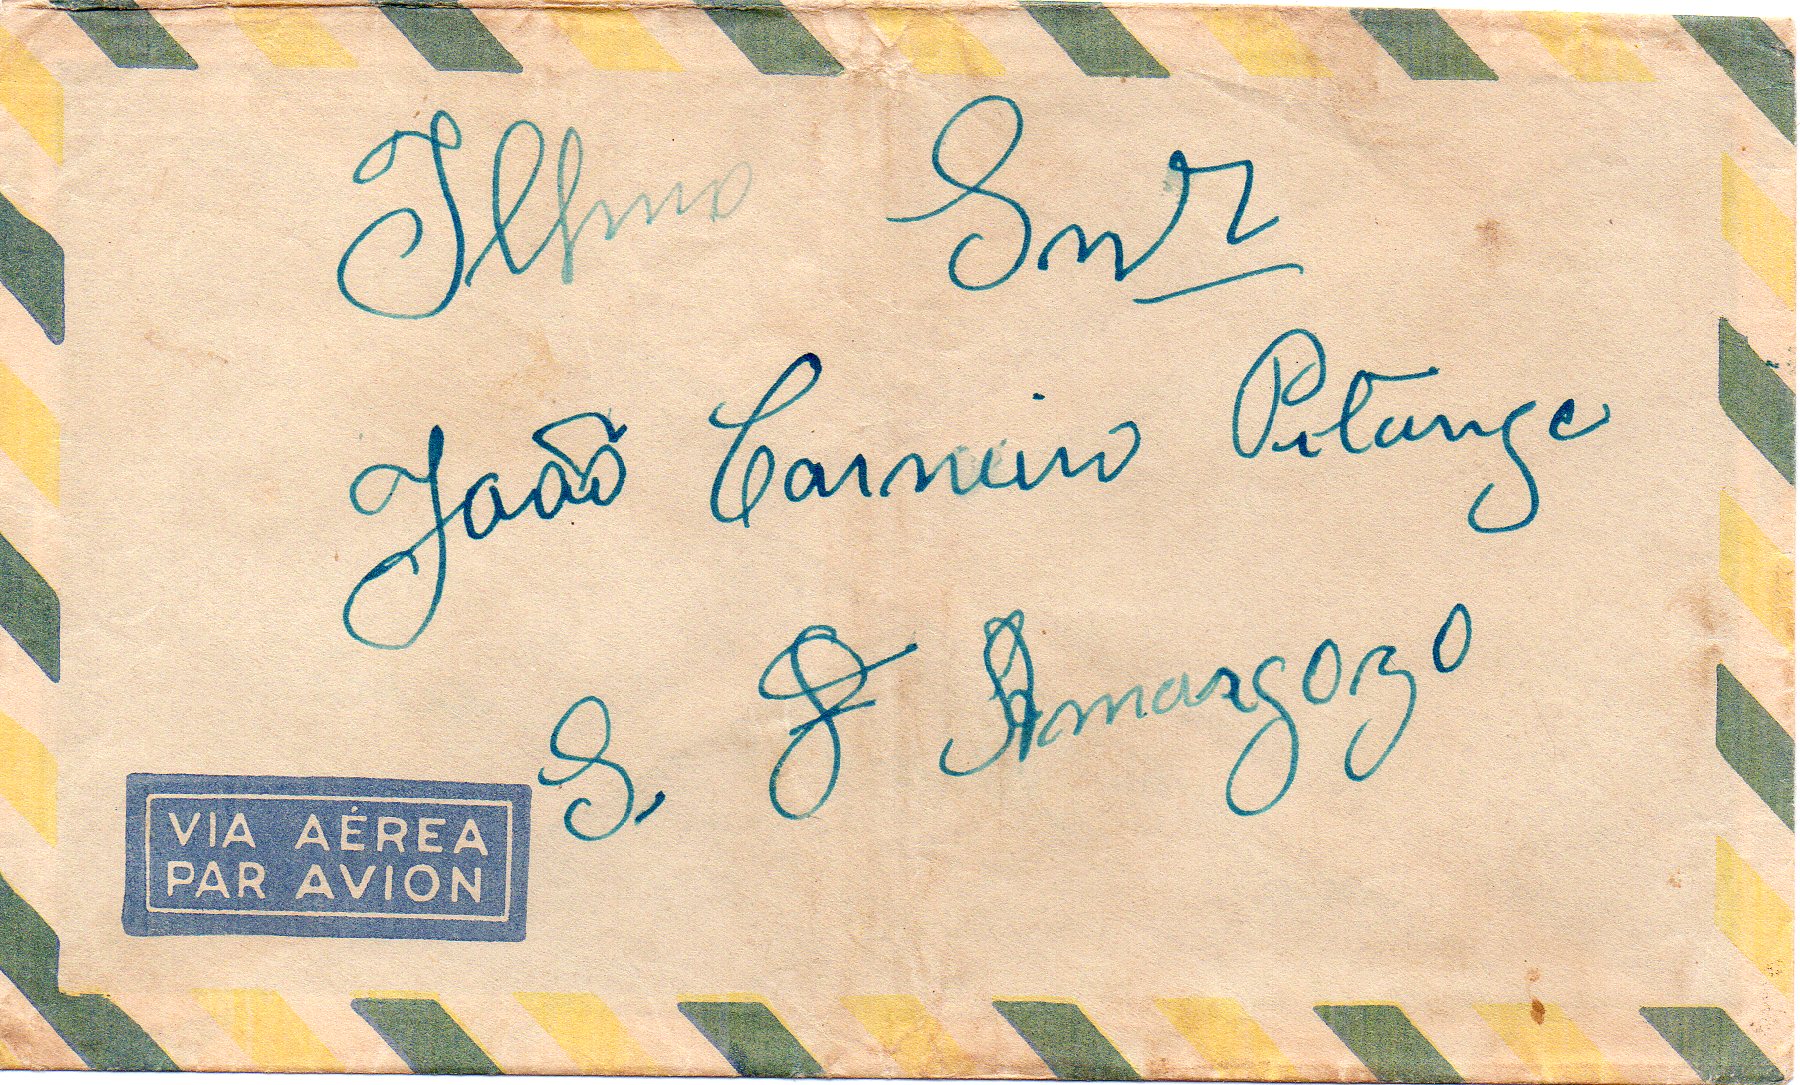 Ilhmo Snr
João Carneiro Pitanga
S. J Amargozo
VIA AÉREA
PAR AVION